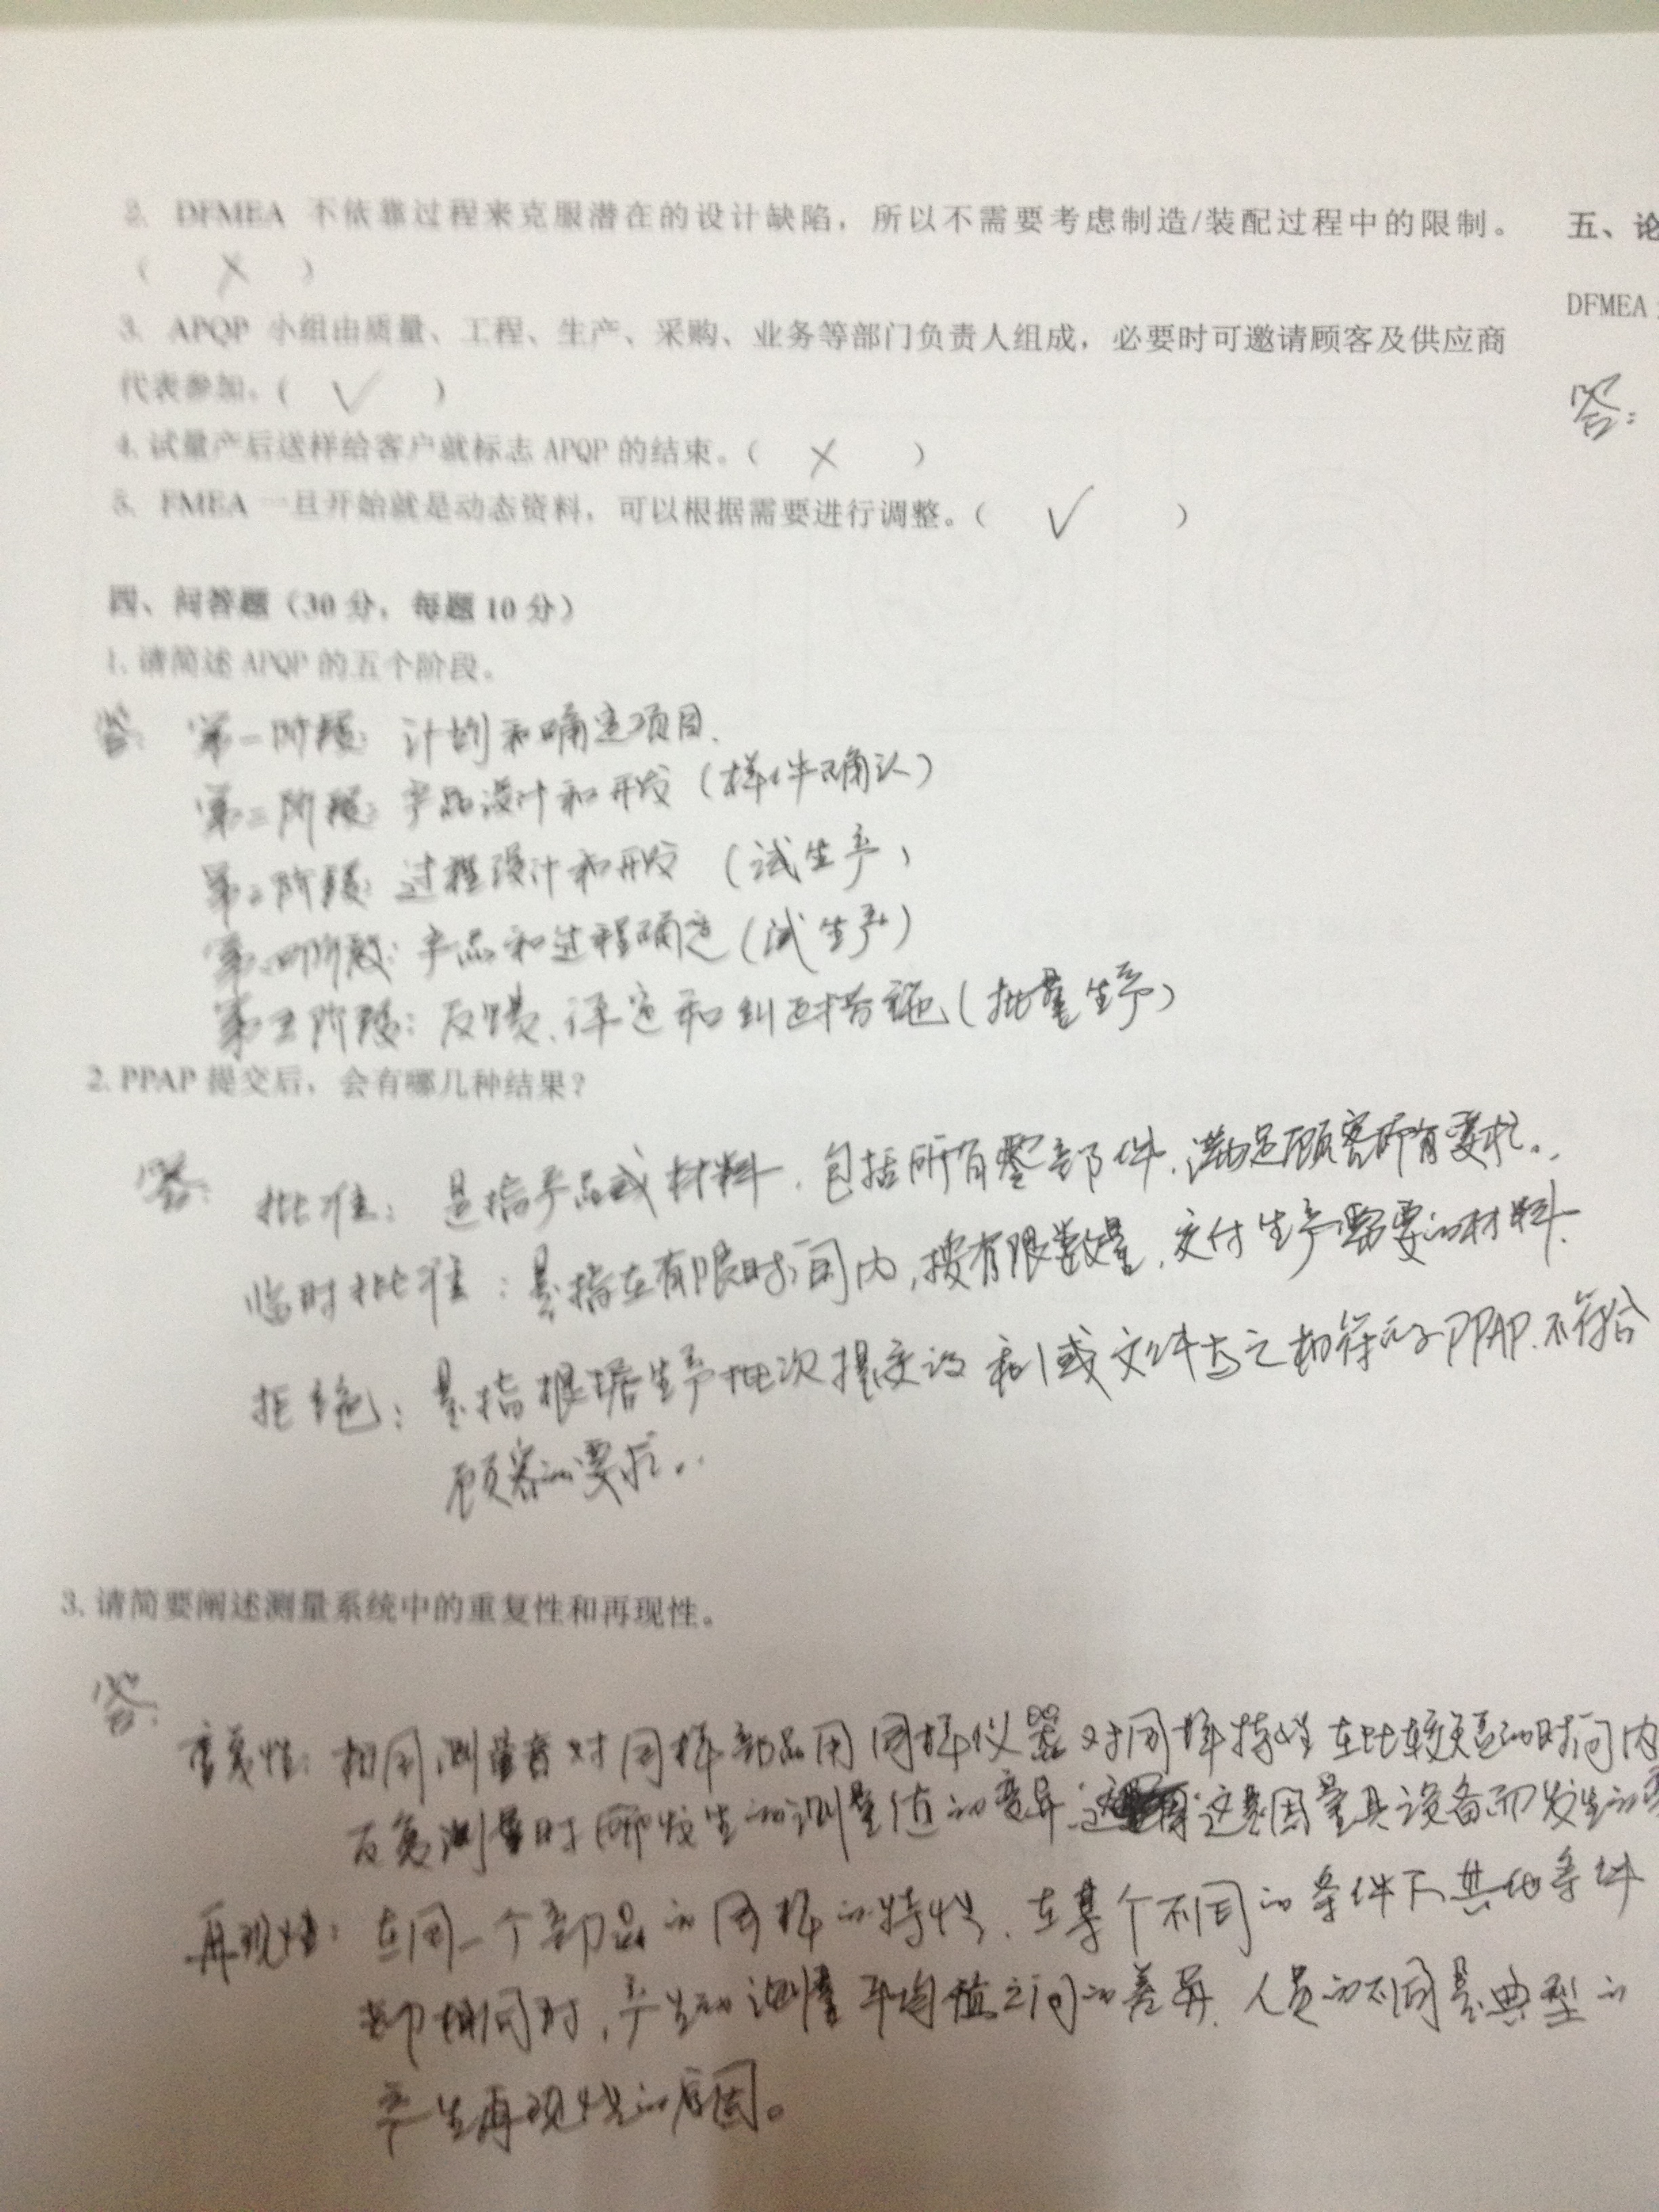 2. DFMEA 不依靠过程来克服潜在的设计缺陷，所以不需要考虑制造/装配过程中的限制。
（ × ）
3. APQP 小组由质量、工程、生产、采购、业务等部门负责人组成，必要时可邀请顾客及供应商
代表参加。（ √ ）
4. 试量产后送样给客户就标志 APQP 的结束。（ × ）
5. FMEA 一旦开始就是动态资料，可以根据需要进行调整。（ √ ）
四、问答题（30 分，每题 10 分）
1. 请简述 APQP 的五个阶段。
答： 第一阶段：计划和确定项目.
第二阶段：产品设计和开发（样件确认）
第三阶段：过程设计和开发（试生产）
第四阶段：产品和过程确定（试生产）
第五阶段：反馈、评定和纠正措施（批量生产）
2. PPAP 提交后，会有哪几种结果？
答： 批准：是指产品或材料，包括所有零部件，满足顾客所有要求。
临时批准：是指在有限时间内，按有限数量，交付生产需要的材料.
拒绝：是指根据生产批次提交的和/或文件与之相符的PPAP.不符合
顾客的要求。
3. 请简要阐述测量系统中的重复性和再现性。
答：
重复性：相同测量者对同样部品用同样仪器对同样特性在比较短的时间内
反复测量时所发生的测量值的变异 这是因量具设备而发生的
再现性：在同一个部品的同样的特性，在某个不同的条件下其他条件
都相同时，产生的测量平均值之间的差异，人员的不同是典型的
产生再现性的原因。
五、论
DFMEA
答：